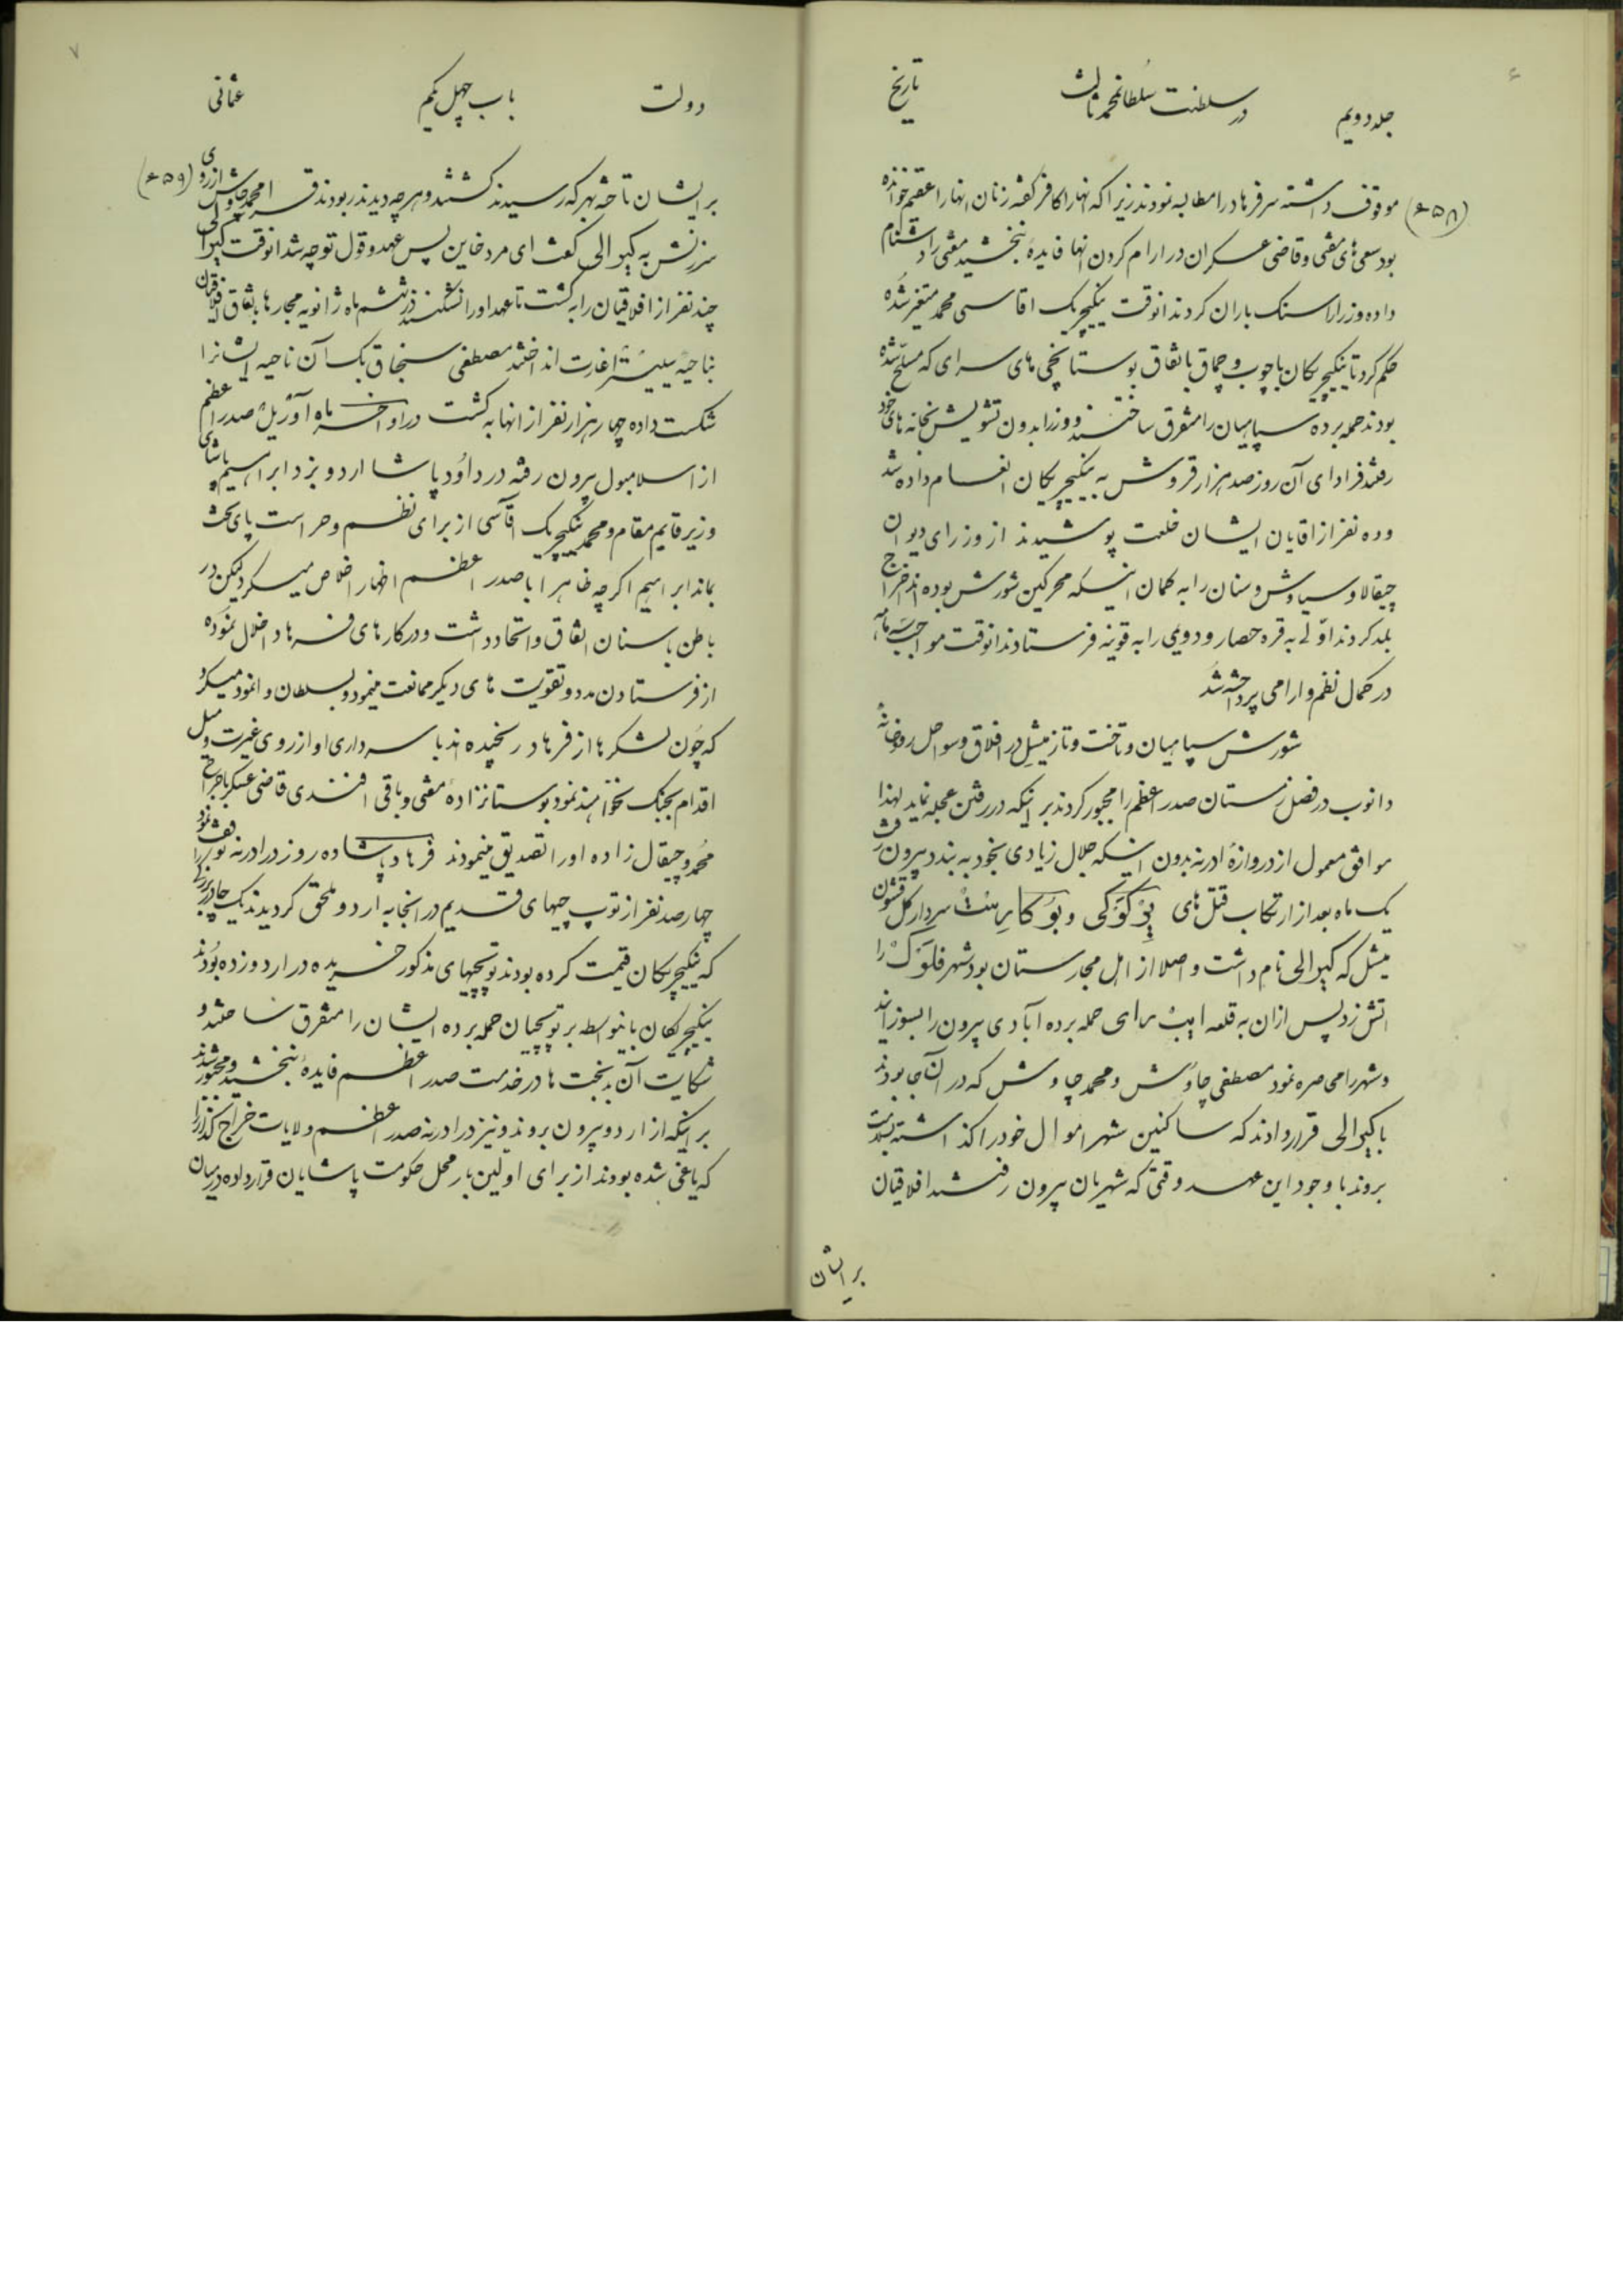 تاریخ در سلطنت سلطان محمد ثالث جلد دویم
موقوف داشته سر فرهاد را مطالبه نمودند زیرا که انها را کافر گفته زنان انها را عقیم خوانده (۶۵۸)
بود سعی های مفتی و قاضی عسکران در ارام کردن انها فایدهٔ نبخشید مفتی را دشنام
داده وزرا را سنک باران کردند انوقت ینکیچریک اقاسی محمد متغیر شده
حکم کرد تا ینکیچریکان با چوب و چماق باتفاق بوستانچی های سرای که مسلح شده
بودند حمله برده سپاهیان را متفرق ساختند و وزرا بدون تشویش بخانه های خود
رفتند فردای آن روز صد هزار قروش به ینکیچریکان انعام داده شد
و ده نفر از اقایان ایشان خلعت پوشیدند از وزرای دیوان
چیقالا و سیاوش و سنان را به کمان اینکه محرکین شورش بوده اند اخراج
بلد کردند اوّلی به قره حصار و دویمی را به قونیه فرستادند انوقت مواجب سه ماهه
در کمال نظم و ارامی پرداخته شد
شورش سپاهیان و تاخت و تاز میشل در افلاق و سواحل رودخانهٔ
دانوب در فصل زمستان صدر اعظم را مجبور کردند بر اینکه در رفتن عجله نماید لهذا
موافق معمول از دروازهٔ ادرنه بدون اینکه جلال زیادی بخود به بندد بیرون رفت
یک ماه بعد از ارتکاب قتل های و سردار کل قشون
میشل که کیوالی نام داشت و اصلا از اهل مجارستان بود شهر فلوک را
اتش زد پس ازان به قلعه برای حمله برده آبادی بیرون را بسوزانید
و شهر را محاصره نمود مصطفی چاوش و محمد چاوش که در آن جا بودند
با کیوالی قرار دادند که ساکنین شهر اموال خود را کذاشته بسلامت
بروند با وجود این عهد وقتی که شهریان بیرون رفتند افلاقیان
بر ایشان
۷
دولت باب چهل یکم عثمانی
بر ایشان تاخته بهر که رسیدند کشتند و هر چه دیدند ربودند قره محمد چاوش از روی (۶۵۹)
سرزنش به کیوالی کفت ای مرد خاین پس عهد و قول تو چه شد انوقت کیوالی
چند نفر از افلاقیان را به کشت تا عهد او را نشکنند در ششم ماه ژانویه مجارها باتفاق افلاقیان
بناحیهٔ سیلیسترا غارت انداختند مصطفی سنجاق بک آن ناحیه ایشانرا
شکست داده چهار هزار نفر از انها به کشت در اواخر ماه آوریل صدر اعظم
از اسلامبول بیرون رفته در داود پاشا اردو بزد ابراهیم پاشای
وزیر قایم مقام و محمد ینکیچریک اقاسی از برای نظم و حراست پای تخت
بماند ابراهیم اکرچه ظاهرا با صدر اعظم اظهار اخلاص میکرد لیکن در
باطن با سنان اتفاق و اتحاد داشت و در کارهای فرهاد اخلال نموده
از فرستادن مدد و تقویت های دیکر ممانعت مینمود و بسلطان وانمود میکرد
که چون لشکرها از فرهاد رنجیده اند با سرداری او از روی غیرت و میل
اقدام بجنک نخواهند نمود بوستانزادهٔ مفتی و باقی افندی قاضی عسکر با جراح
محمد و چیقال زاده او را تصدیق مینمودند فرهاد پاشا ده روز در ادرنه توقف نمود
چهار صد نفر از توپ چیهای قدیم در انجا به اردو ملحق کردیدند یک چادر بزرکی را
که ینکیچریکان قیمت کرده بودند توپچیهای مذکور خریده در اردو زده بودند
ینکیچریکان باینواسطه بر توپچیان حمله برده ایشان را متفرق ساختند و
شکایت آن بدبخت ها در خدمت صدر اعظم فایدهٔ نبخشید و مجبور شدند
بر اینکه از اردو بیرون بروند و نیز در ادرنه صدر اعظم ولایات خراج کذار را
که یاغی شده بودند از برای اولین بار محل حکومت پاشایان قرار داده در میان